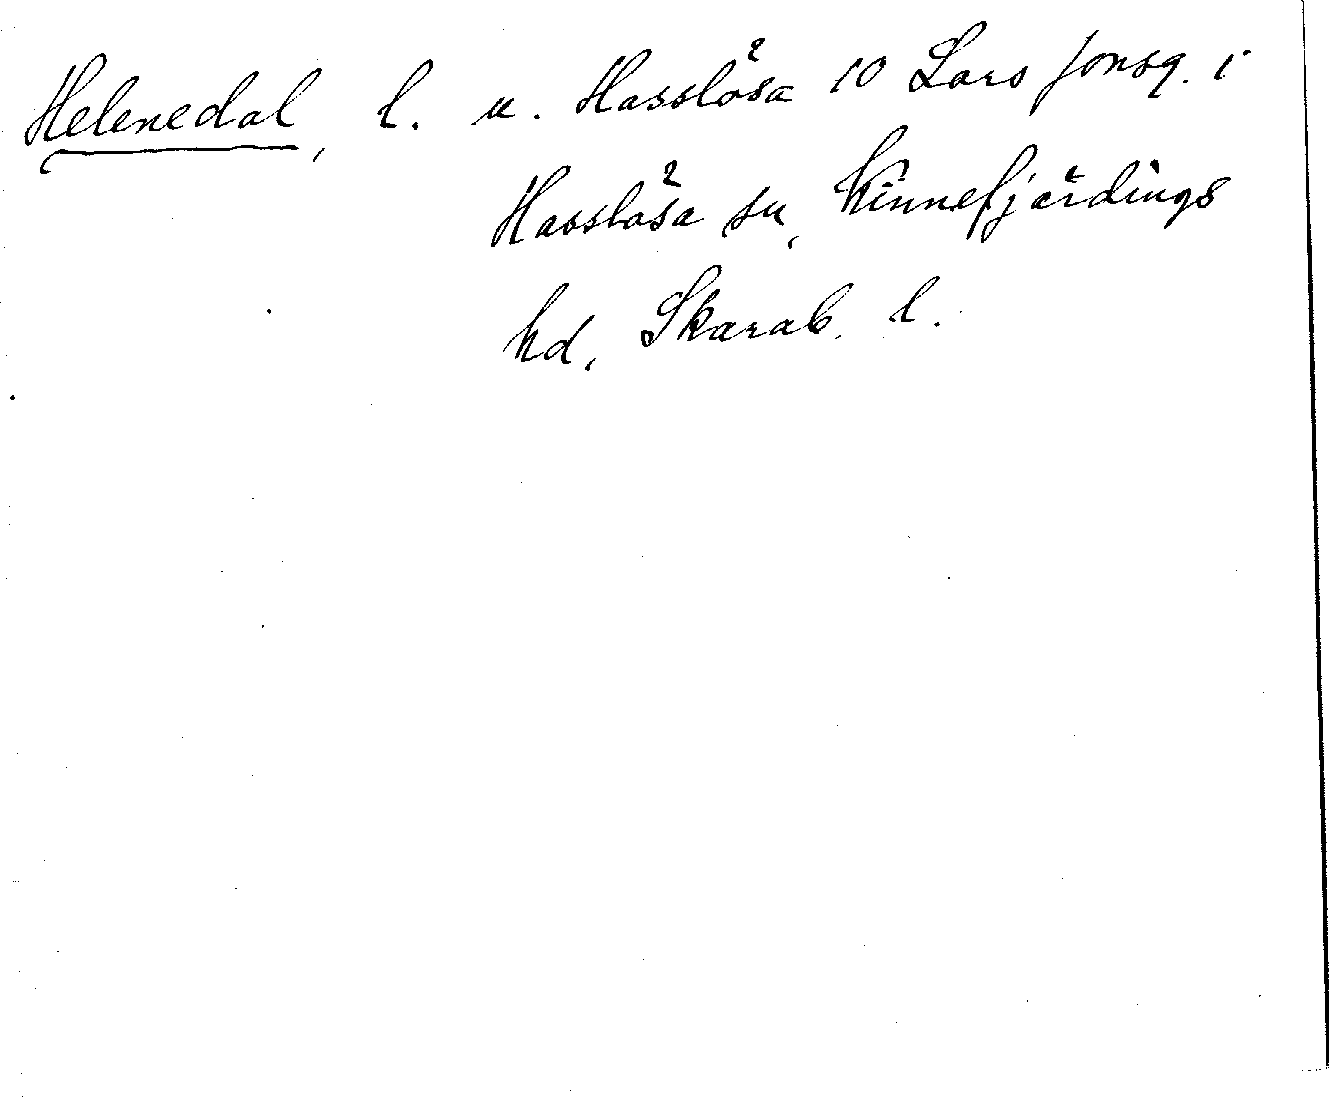 Helenedal, l. u. Hasslösa 10 Lars Jonsg. i
Hasslösa sn, Kinnefjärdings
hd, Skarab. l.